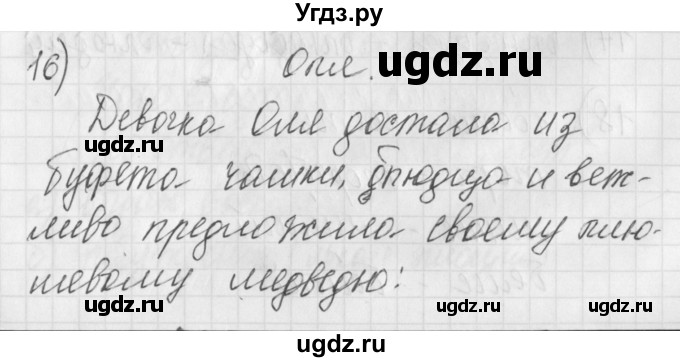 Угдз.ру
16) Оля.
ugdz.ru
Девочка Оля достала из
буфета чашки, блюдца и веж-
ugdz.ru
ugdz.ru
ливо предложила своему плю-
шевому медведю:
ugdz.ru
ugdz.ru
ugdz.ru
Угдз.ру